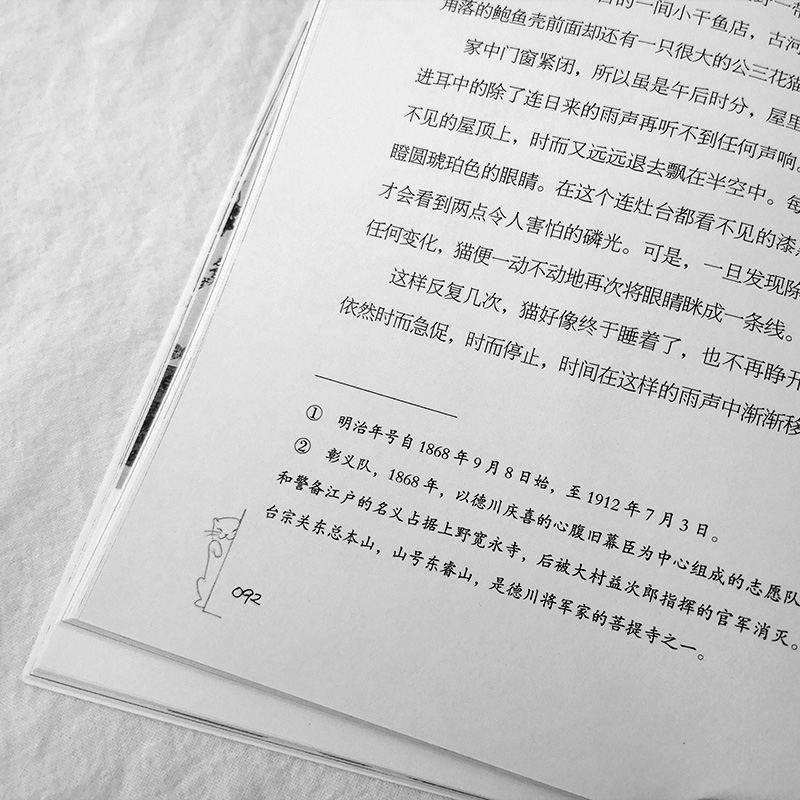 的一间小干鱼店，古河
角落的鲍鱼壳前面却还有一只很大的公三花猫
家中门窗紧闭，所以虽是午后时分，屋里
进耳中的除了连日来的雨声再听不到任何声响。
不见的屋顶上，时而又远远退去飘在半空中。每
瞪圆琥珀色的眼睛。在这个连灶台都看不见的漆黑
才会看到两点令人害怕的磷光。可是，一旦发现除
任何变化，猫便一动不动地再次将眼睛眯成一条线。
这样反复几次，猫好像终于睡着了，也不再睁开
依然时而急促，时而停止，时间在这样的雨声中渐渐移
① 明治年号自1868年9月8日始，至1912年7月3日。
② 彰义队，1868年，以德川庆喜的心腹旧幕臣为中心组成的志愿队
和警备江户的名义占据上野宽永寺，后被大村益次郎指挥的官军消灭。
台宗关东总本山，山号东睿山，是德川将军家的菩提寺之一。
092